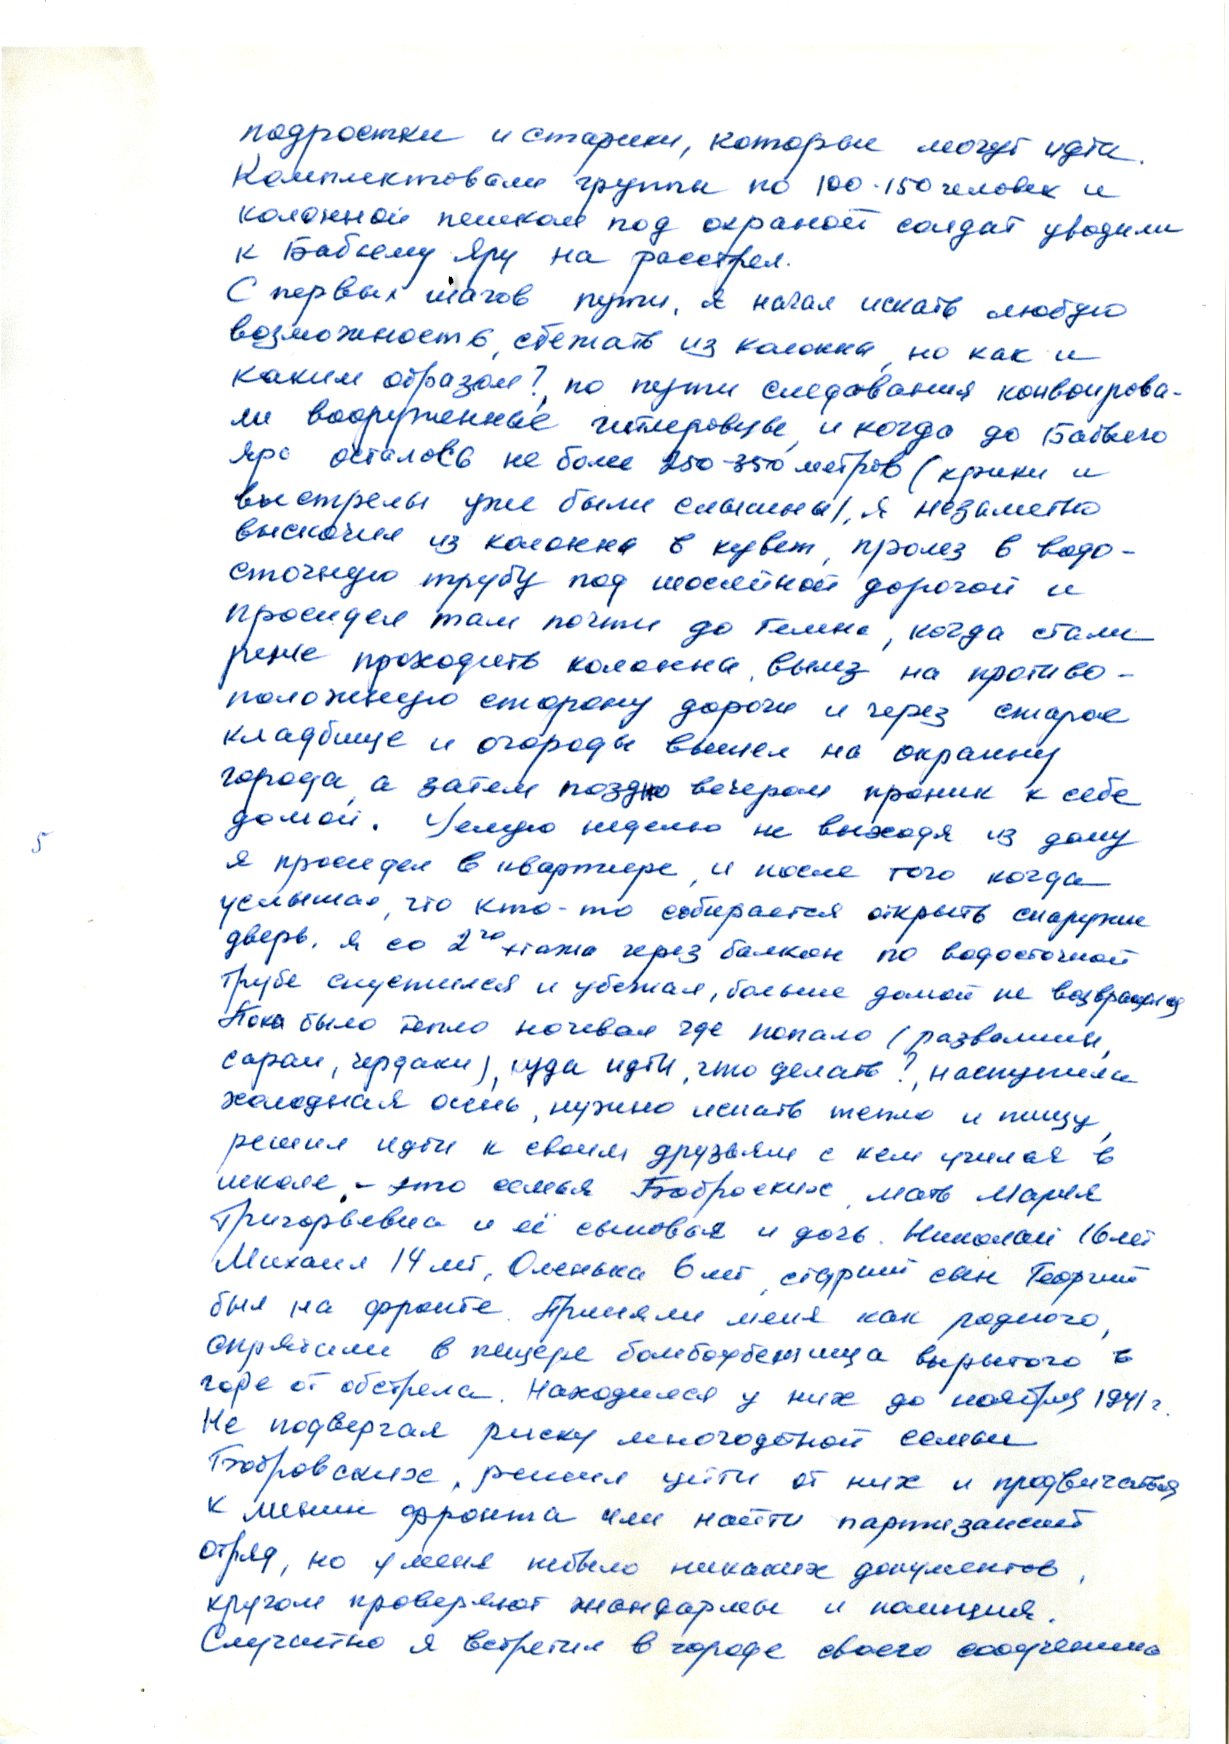 подростки и старики, которые могут идти.
Комплектовали группы по 100-150 человек и
колонной пешком под охраной солдат уводили
к Бабьему Яру на расстрел.
С первых шагов пути, я начал искать любую
возможность, сбежать из колонны, но как и
каким образом?, по пути следования конвоирова-
ли вооруженные гитлеровцы, и когда до Бабьего
Яра осталось не более 250-350 метров (крики и
выстрелы уже были слышны), я незаметно
выскочил из колонны в кювет, пролез в водо-
сточную трубу под шоссейной дорогой и
просидел там почти до темна, когда стали
реже проходить колонны, вылез на противо-
положную сторону дороги и через старое
кладбище и огороды вышел на окраину
города, а затем поздно вечером проник к себе
домой. Целую неделю не выходя из дому
5
я просидел в квартире, и после того когда
услышал, что кто-то собирается открыть снаружи
дверь. я со 2го этажа через балкон по водосточной
трубе спустился и убежал, больше домой не возвращался
Пока было тепло ночевал где попало (развалины,
сараи, чердаки), куда идти, что делать?, наступила
холодная осень, нужно искать тепло и пищу,
решил идти к своим друзьям с кем учился в
школе, - это семья Бобровских, мать Мария
Григорьевна и её сыновья и дочь. Николай 16 лет
Михаил 14 лет, Оленька 6 лет, старший сын Георгий
был на фронте. Приняли меня как родного,
спрятали в пещере бомбоубежища вырытого в
горе от обстрела. Находился у них до ноября 1941 г.
Не подвергая риску многодетной семьи
Бобровских, решил уйти от них и продвигаться
к линии фронта или найти партизанский
отряд, но у меня небыло никаких документов,
кругом проверяют жандармы и полиция.
Случайно я встретил в городе своего соученика